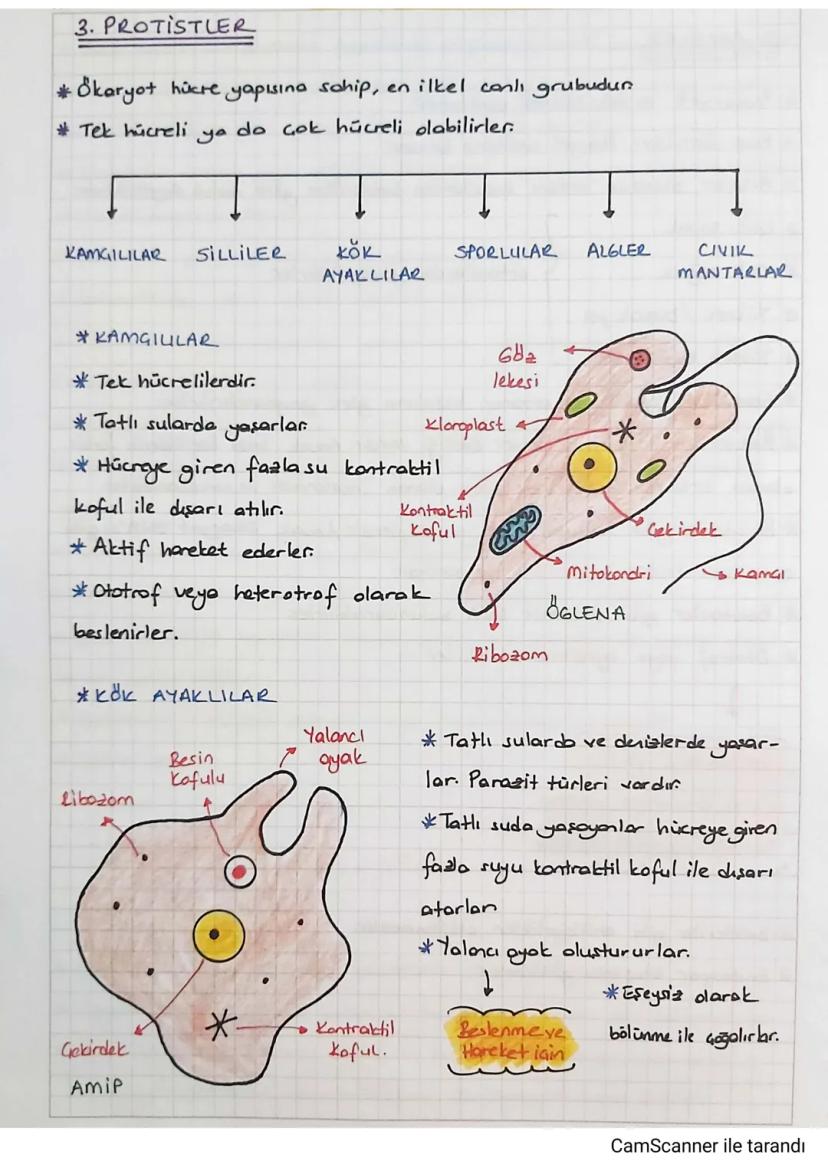 3. PROTİSTLER
* Ökaryot hücre yapısına sahip, en ilkel canlı grubudur.
* Tek hücreli ya da çok hücreli olabilirler.
KAMÇILILAR SİLLİLER KÖK AYAKLILAR SPORLULAR ALGLER CIVIK MANTARLAR
* KAMÇILILAR
* Tek hücrelilerdir.
* Tatlı sularda yaşarlar.
* Hücreye giren fazla su kontraktil
koful ile dışarı atılır.
* Aktif hareket ederler.
* Ototrof veya heterotrof olarak
beslenirler.
Göz
lekesi
Kloroplast
Kontraktil
Koful
Çekirdek
Mitokondri
Kamçı
ÖGLENA
Ribozom
* KÖK AYAKLILAR
Yalancı
ayak
Besin
Kofulu
Ribozom
Çekirdek
Kontraktil
Koful.
AMİP
* Tatlı sularda ve denizlerde yaşar-
lar. Parazit türleri vardır.
* Tatlı suda yaşayanlar hücreye giren
fazla suyu kontraktil koful ile dışarı
atarlar.
* Yalancı ayak oluştururlar.
Beslenme ve
Hareket için
* Eşeysiz olarak
bölünme ile çoğalırlar.
CamScanner ile tarandı